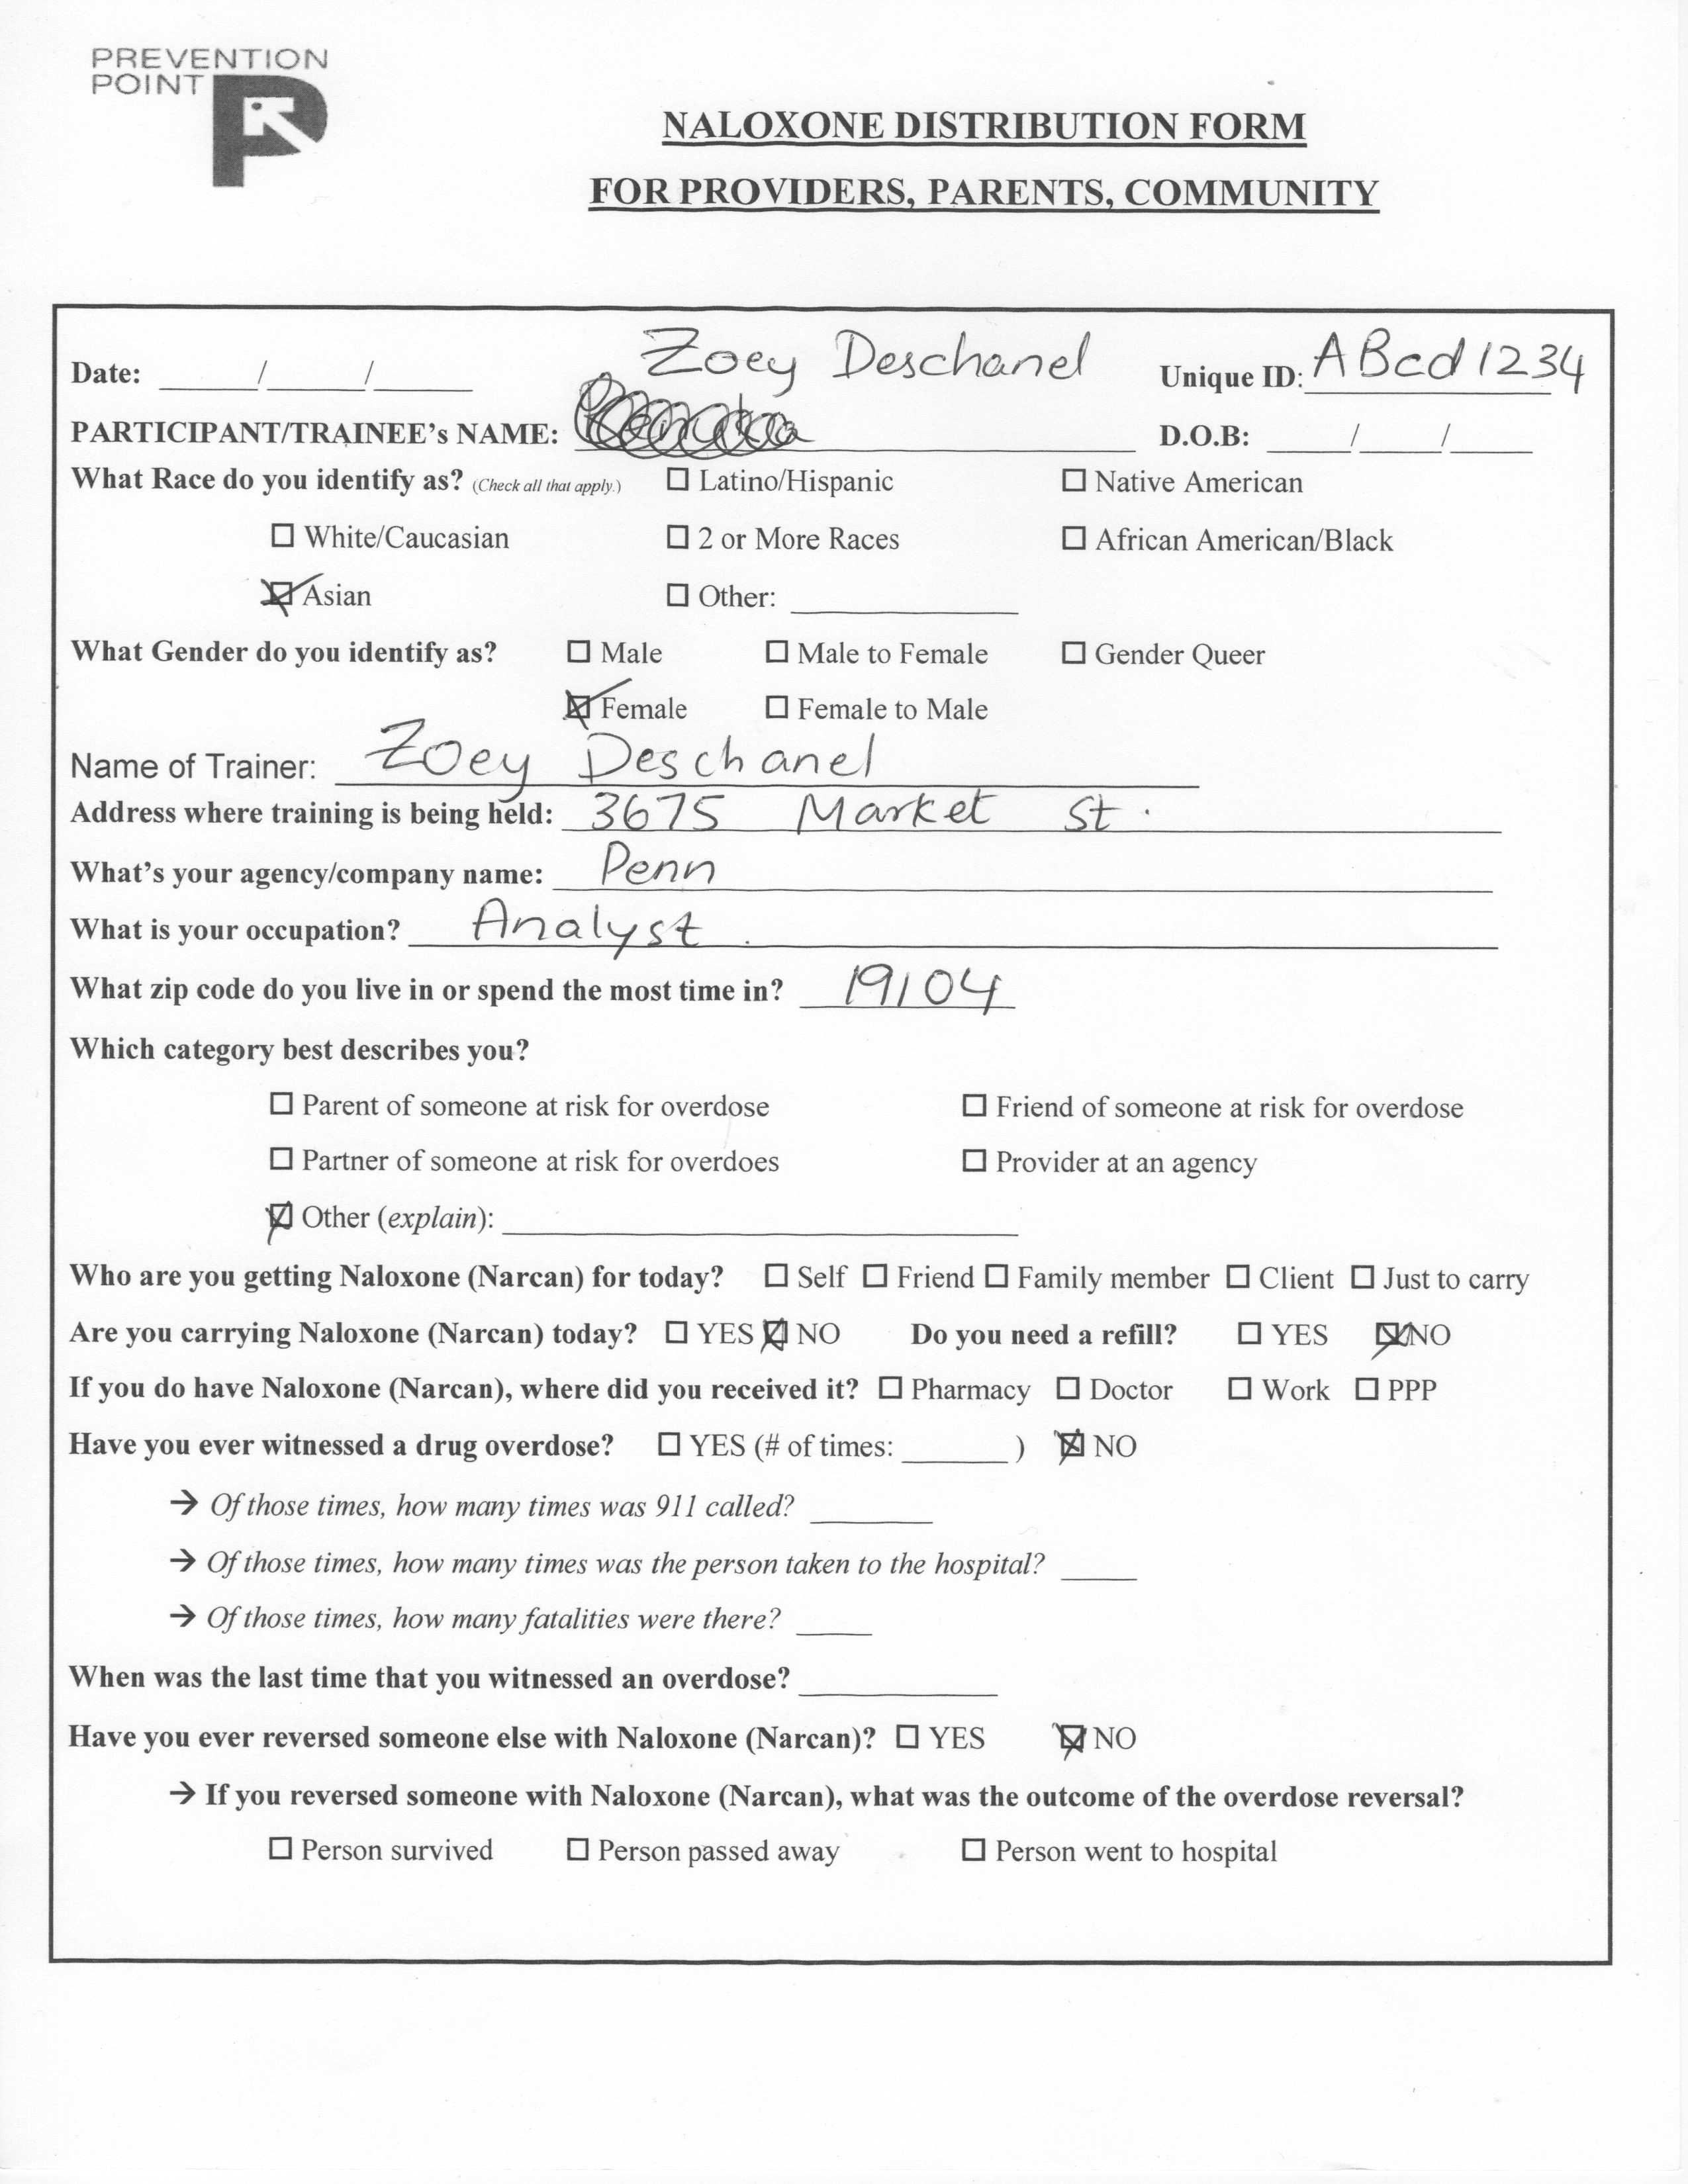 PREVENTION
POINT
NALOXONE DISTRIBUTION FORM
FOR PROVIDERS, PARENTS, COMMUNITY
Zoey Deschanel
Date: ______/______/______ Unique ID: ABcd1234
PARTICIPANT/TRAINEE's NAME: D.O.B: _____/_____/_____
What Race do you identify as? (Check all that apply.) ☐ Latino/Hispanic ☐ Native American
☐ White/Caucasian ☐ 2 or More Races ☐ African American/Black
☒ Asian ☐ Other: ______________
What Gender do you identify as? ☐ Male ☐ Male to Female ☐ Gender Queer
☒ Female ☐ Female to Male
Name of Trainer: Zoey Deschanel
Address where training is being held: 3675 Market St.
What's your agency/company name: Penn
What is your occupation? Analyst.
What zip code do you live in or spend the most time in? 19104
Which category best describes you?
☐ Parent of someone at risk for overdose ☐ Friend of someone at risk for overdose
☐ Partner of someone at risk for overdoes ☐ Provider at an agency
☒ Other (explain): ______________
Who are you getting Naloxone (Narcan) for today? ☐ Self ☐ Friend ☐ Family member ☐ Client ☐ Just to carry
Are you carrying Naloxone (Narcan) today? ☐ YES ☒ NO Do you need a refill? ☐ YES ☒ NO
If you do have Naloxone (Narcan), where did you received it? ☐ Pharmacy ☐ Doctor ☐ Work ☐ PPP
Have you ever witnessed a drug overdose? ☐ YES (# of times: _______ ) ☒ NO
→ Of those times, how many times was 911 called? ________
→ Of those times, how many times was the person taken to the hospital? _____
→ Of those times, how many fatalities were there? _____
When was the last time that you witnessed an overdose? _____________
Have you ever reversed someone else with Naloxone (Narcan)? ☐ YES ☒ NO
→ If you reversed someone with Naloxone (Narcan), what was the outcome of the overdose reversal?
☐ Person survived ☐ Person passed away ☐ Person went to hospital